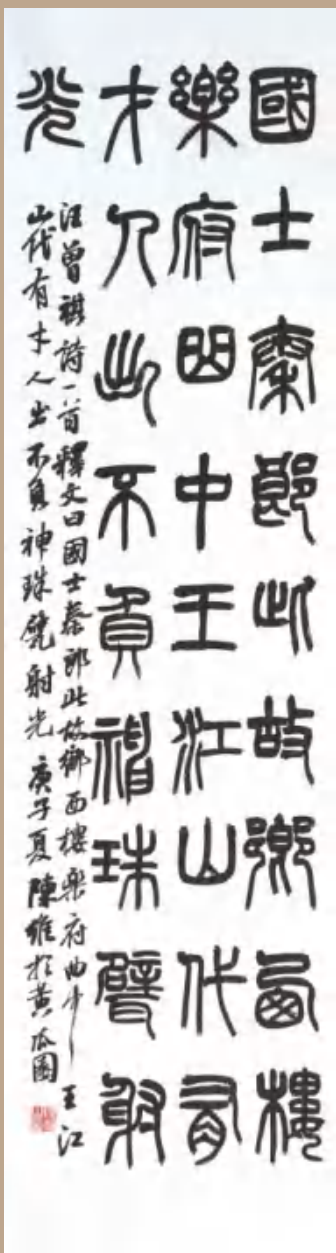 國士秦郎此故鄉西樓
樂府曲中王江山代有
才人出不負神珠甓射
光
汪曾祺詩一首釋文曰國士秦郎此故鄉西樓樂府曲中王江
山代有才人出不負神珠甓射光 庚子夏陳維於黃瓜園